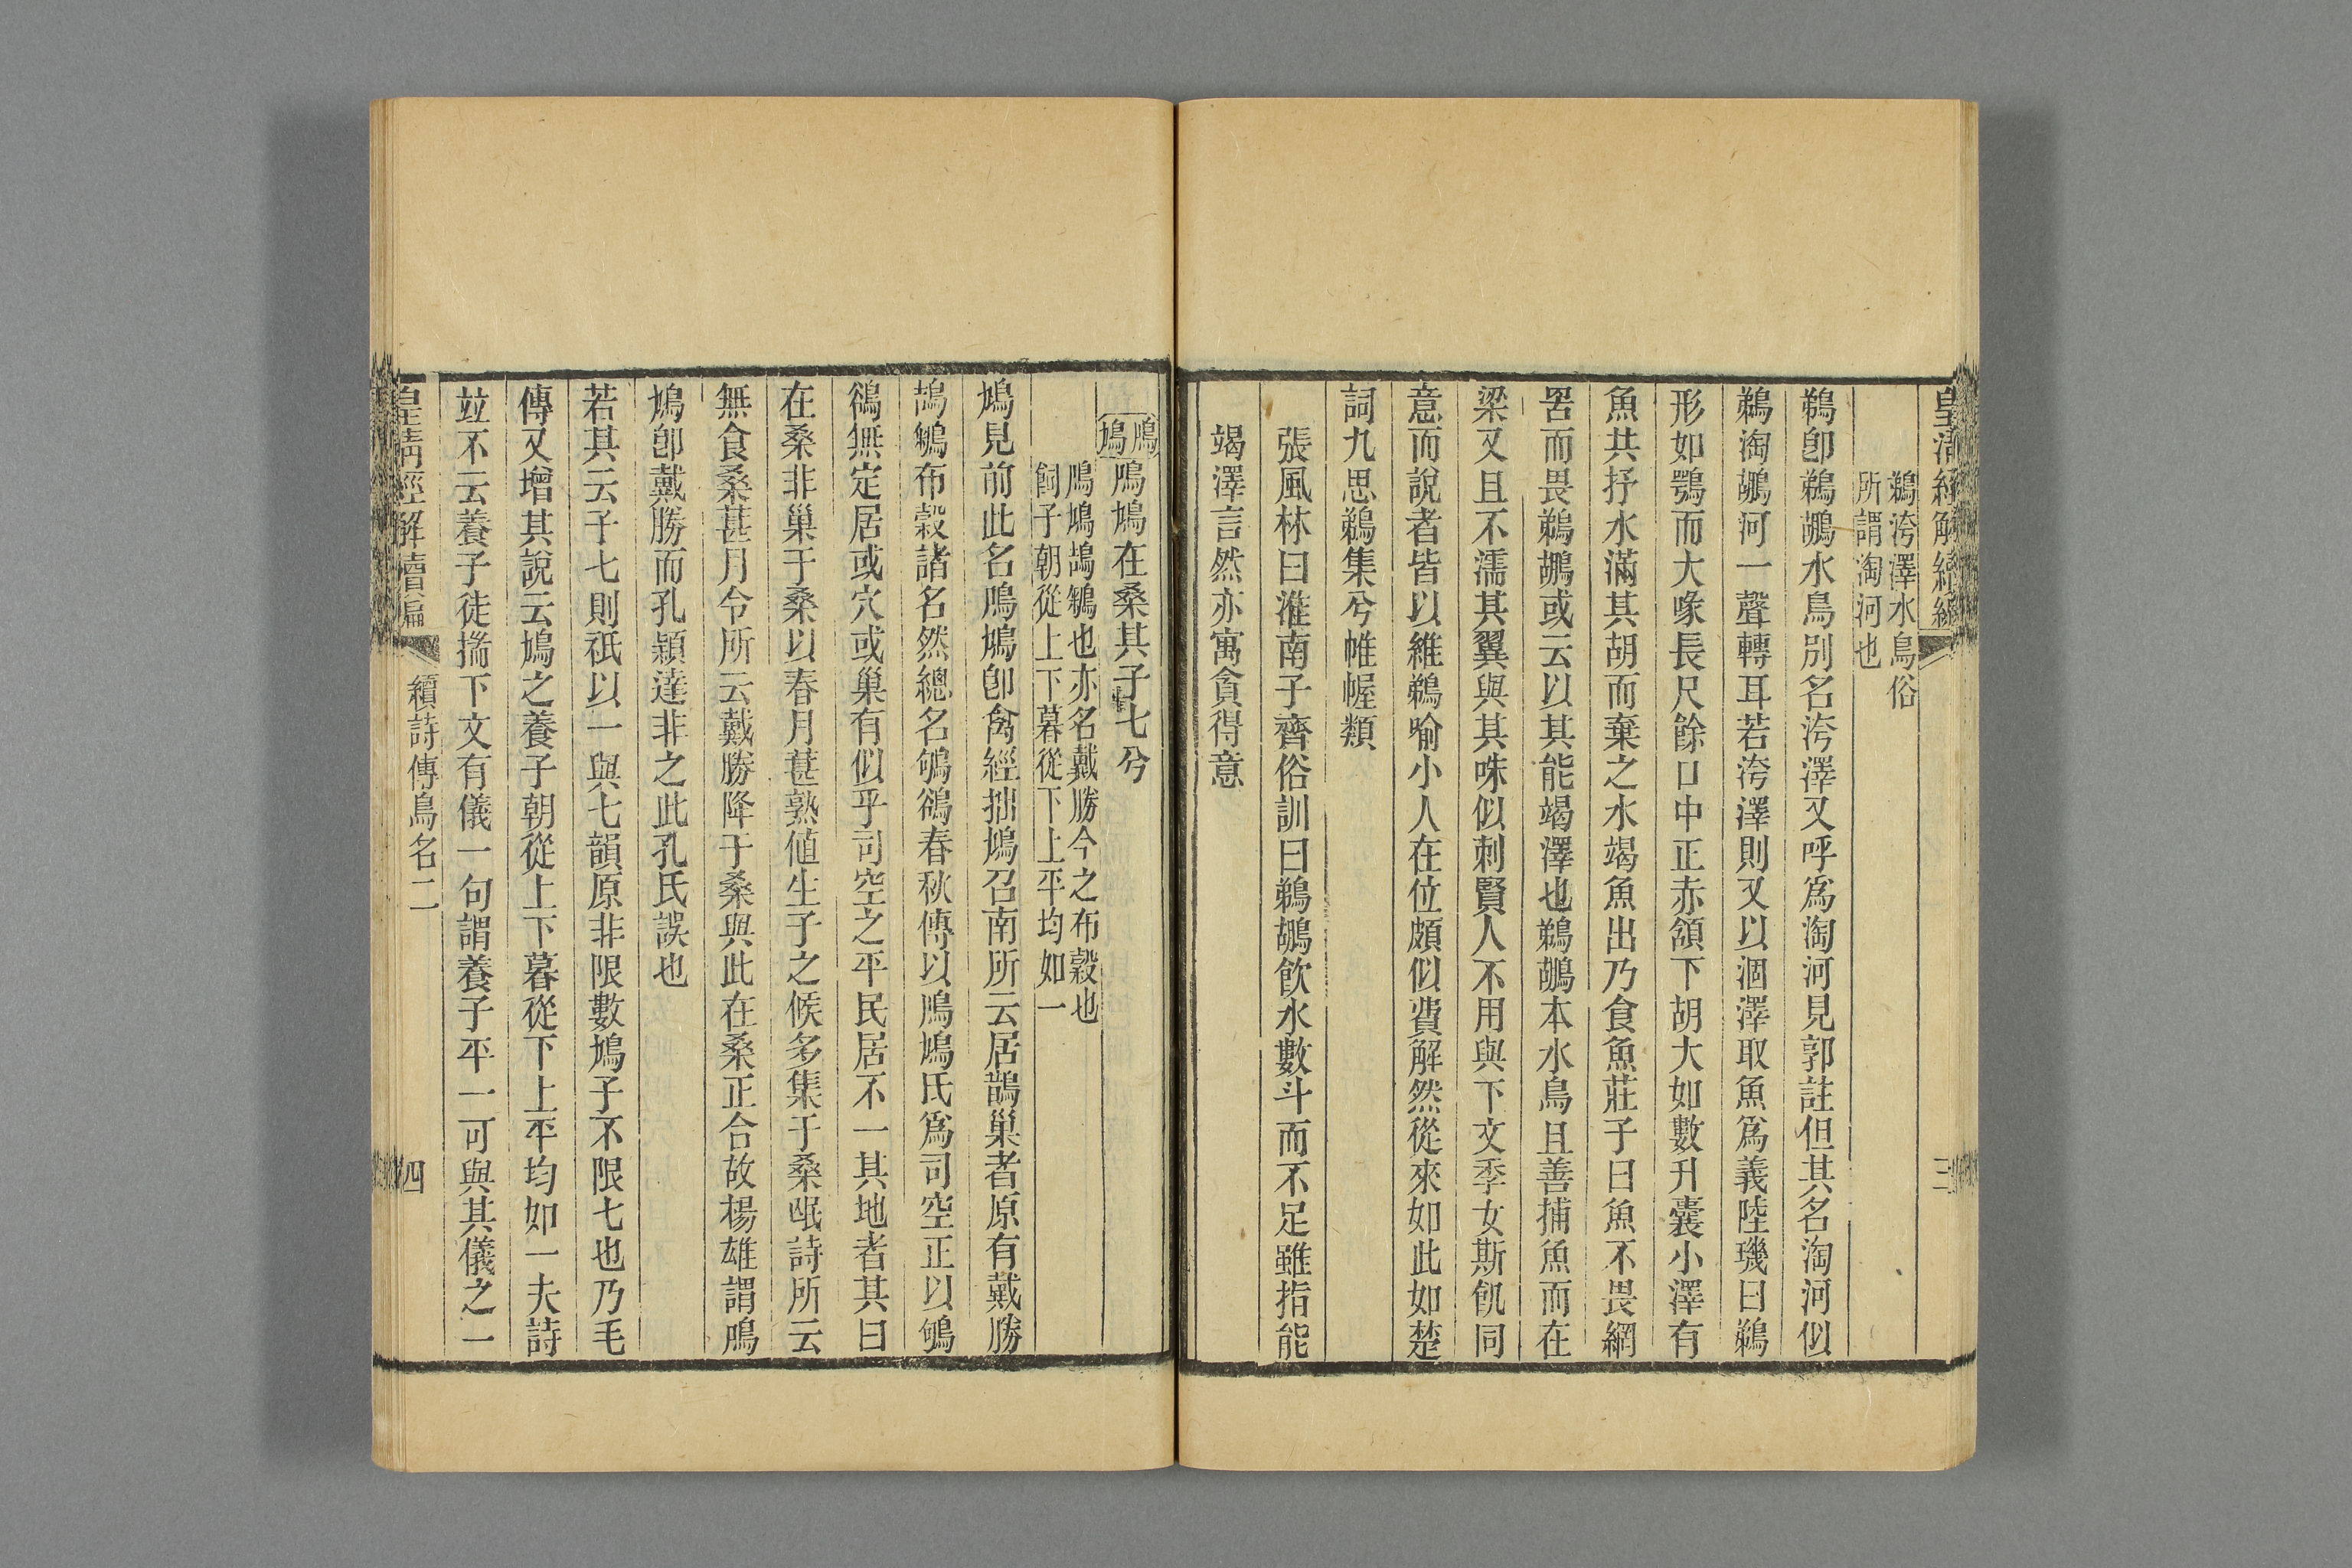 皇淸經解續編
三
鵜洿澤水鳥俗
所謂淘河也
鵜卽鵜鶘水鳥別名洿澤又呼爲淘河見郭註但其名淘河似
鵜淘鶘河一聲轉耳若洿澤則又以涸澤取魚爲義陸璣曰鵜
形如鶚而大喙長尺餘口中正赤頷下胡大如數升囊小澤有
魚共抒水滿其胡而棄之水竭魚出乃食魚莊子曰魚不畏網
罟而畏鵜鶘或云以其能竭澤也鵜鶘本水鳥且善捕魚而在
梁又且不濡其翼與其咮似刺賢人不用與下文季女斯飢同
意而說者皆以維鵜喻小人在位頗似費解然從來如此如楚
詞九思鵜集兮帷幄類
張風林曰淮南子齊俗訓曰鵜鶘飮水數斗而不足雖指能
竭澤言然亦寓貪得意
鳲鳩
鳲鳩在桑其子七兮
鳲鳩鴶鵴也亦名戴勝今之布穀也
飼子朝從上下暮從下上平均如一
鳩見前此名鳲鳩卽禽經拙鳩召南所云居鵲巢者原有戴勝
鴶鵴布穀諸名然總名鳻鶞春秋傳以鳲鳩氏爲司空正以鳻
鶞無定居或穴或巢有似乎司空之平民居不一其地者其曰
在桑非巢于桑以春月葚熟値生子之候多集于桑氓詩所云
無食桑葚月令所云戴勝降于桑與此在桑正合故楊雄謂鳲
鳩卽戴勝而孔穎達非之此孔氏誤也
若其云子七則祇以一與七韻原非限數鳩子不限七也乃毛
傳又增其說云鳩之養子朝從上下暮從下上平均如一夫詩
竝不云養子徒揣下文有儀一句謂養子平一可與其儀之一
皇淸經解續編
續詩傳鳥名二
四